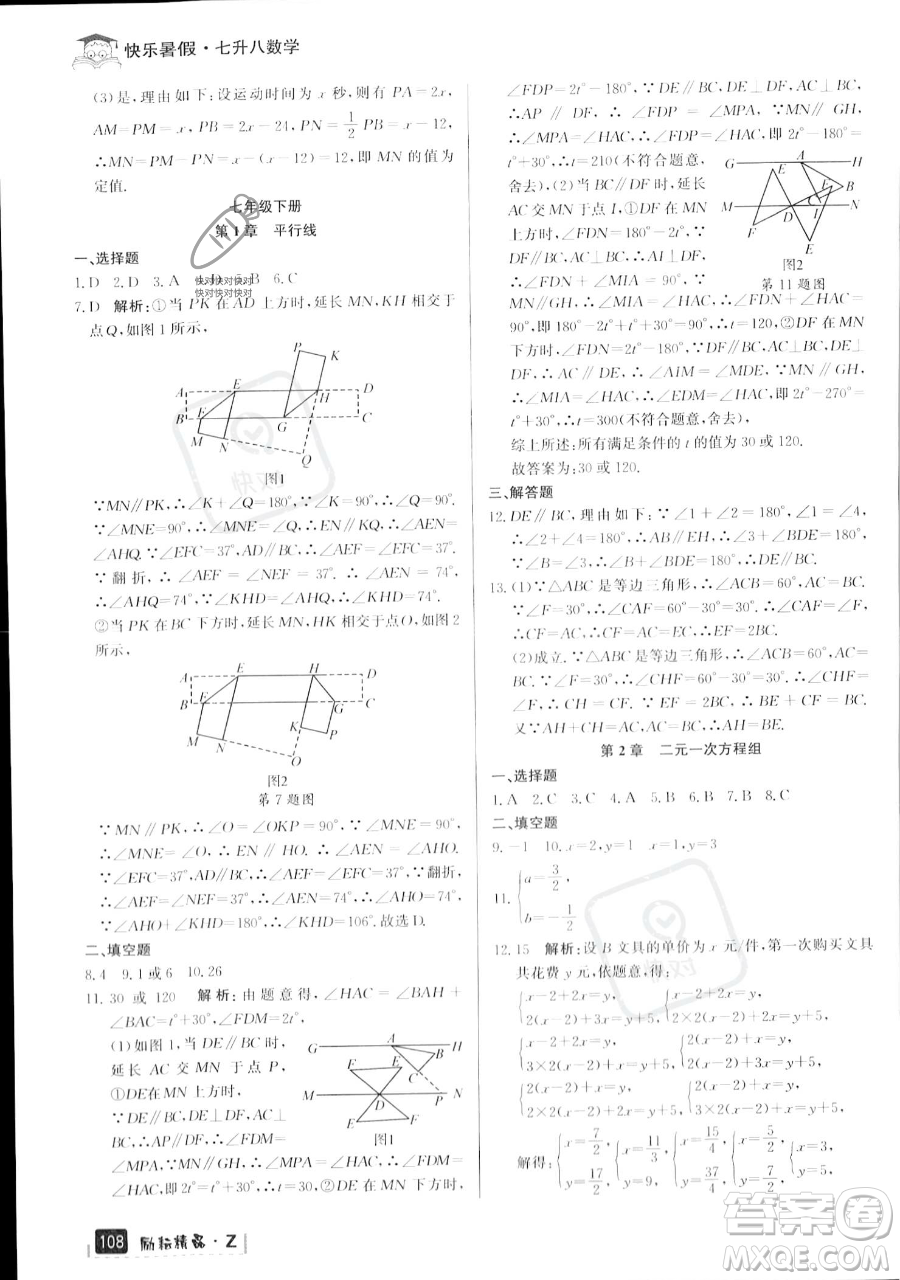 快乐暑假·七升八数学
(3)是,理由如下:设运动时间为 x 秒,则有 PA=2x,
AM=PM=x,PB=2x-24,PN=1/2 PB=x-12,
∴MN=PM-PN=x-(x-12)=12,即 MN 的值为
定值.
七年级下册
第1章 平行线
一、选择题
1.D 2.D 3.A 4.D 5.B 6.C
快对快对快对
快对快对快对
7.D 解析:①当 PK 在 AD 上方时,延长 MN,KH 相交于
点Q,如图1所示,
P
K
A E H D
B F G C
M N
Q
图1
∵MN∥PK,∴∠K+∠Q=180°,∴∠Q=90°.
∵∠MNE=90°,∴∠MNE=∠Q,∴EN∥HQ,∴∠AEN=
∠AHQ.∵∠EFC=37°,AD∥BC,∴∠AEF=∠EFC=37°.
∵翻折,∴∠AEF=∠NEF=37°.∴∠AEN=74°,
∴∠AHQ=74°,∵∠KHD=∠AHQ,∴∠KHD=74°;
②当 PK 在 BC 下方时,延长MN,HK相交于点O,如图2
所示,
A E H D
B F G C
M N K P
O
图2
第7题图
∵MN∥PK,∴∠O=∠OKP=90°,∵∠MNE=90°,
∴∠MNE=∠O,∴EN∥HO.∴∠AEN=∠AHO.
∵∠EFC=37°,AD∥BC,∴∠AEF=∠EFC=37°.∵翻折,
∴∠AEF=∠NEF=37°,∴∠AEN=74°,∴∠AHO=
74°.∵∠AHO+∠KHD=180°,∴∠KHD=106°.故选D.
二、填空题
8.4 9.1或6 10.26
11.30 或 120 解析:由题意得,∠HAC=∠BAH+
∠BAC=t°+30°,∠FDM=2t°,
(1)如图1,当 DE∥BC 时,
延长 AC 交 MN 于点 P,
①DE在 MN 上方时,
∵DE∥BC,DE⊥DF,AC⊥
BC,∴AP∥DF,∴∠FDM=
G A H
E E B
C
M D P N
F F
图1
∠MPA,∵MN∥GH,∴∠MPA=∠HAC,∴∠FDM=
∠HAC,即 2t°=t°+30°,∴t=30,②DE在MN下方时,
∠FDP=2t°-180°,∵DE∥BC,DE⊥DF,AC⊥BC,
∴AP∥DF,∴∠FDP=∠MPA,∵MN∥GH,
∴∠MPA=∠HAC,∴∠FDP=∠HAC,即 2t°-180°=
t°+30°,∴t=210(不符合题意,
舍去),(2)当 DE∥BC 时,延长
AC 交 MN 于点 I,①DF在 MN
上方时,∠FDN=180°-2t°,
∵DE∥BC,DE⊥DF,AC⊥BC,
∴AC∥DE,∴∠FDN+∠MIA=
90°,∵MN∥GH,∴∠MIA=
∠HAC,∴∠FDN+∠HAC=
G A H
E F B
C
M D I N
F E
图2
第11题图
90°,即 180°-2t°+t°+30°=90°,∴t=120,②DF在 MN
下方时,∠FDN=2t°-180°,∵DE∥BC,AC⊥BC,DE⊥
DF,∴AC∥DE,∴∠AIM=∠MDE,∵MN∥GH,
∴∠MIA=∠HAC,∴∠EDM=∠HAC,即 2t°-270°=
t°+30°,∴t=300(不符合题意,舍去),
综上所述:所有满足条件的 t 的值为 30 或 120.
故答案为:30 或 120.
三、解答题
12.DE∥BC,理由如下:∵∠1+∠2=180°,∠1=∠4,
∴∠2+∠4=180°,∴EH∥AB,∴∠B=∠EHC.
∵∠3=∠B,∴∠3=∠EHC,∴DE∥BC.
13.(1)∵△ABC 是等边三角形,∴∠CAF=∠ACB=60°.
∵∠F=30°,∴∠CAF=60°-30°=30°.∴∠CAF=∠F,
∴CF=AC.∵CF=AC,∴EF=2BC.
(2)成立.∵△ABC 是等边三角形,∴AC=BC,∠ACB=
60°.∵∠F=30°,∴∠CHF=60°-30°=30°.∴∠CHF=
∠F,∴CH=CF.∵EF=2BC,∴BE+CF=BC.
又∵AH+CH=AC,AC=BC,∴AH=BE.
第2章 二元一次方程组
一、选择题
1.A 2.C 3.C 4.C 5.D 6.C 7.B 8.C
二、填空题
9.-1 10.x=2,y=1 x=1,y=3
11.{a=3/2, b=-1/2
12.15 解析:设 B 文具的单价为 x 元/件,第一次购买文具
共花费 y 元,依题意,得:
{x-2+2x=y, 2(x-2)+x=y+5, {x-2+2x=y, 2×2(x-2)+x=y+5,
{x-2+2x=y, 3×2(x-2)+x=y+5, {2(x-2)+x=y, 2×2(x-2)+x=y+5,
{2(x-2)+x=y, 3×2(x-2)+x=y+5,
解得:{x=7/2, y=17/2 {x=11/3, y=9 {x=15/4, y=37/4 {x=5/2, y=7/2 {x=3, y=5,
108 励耘精品·Z
快对
快对
答案圈
MXQE.COM